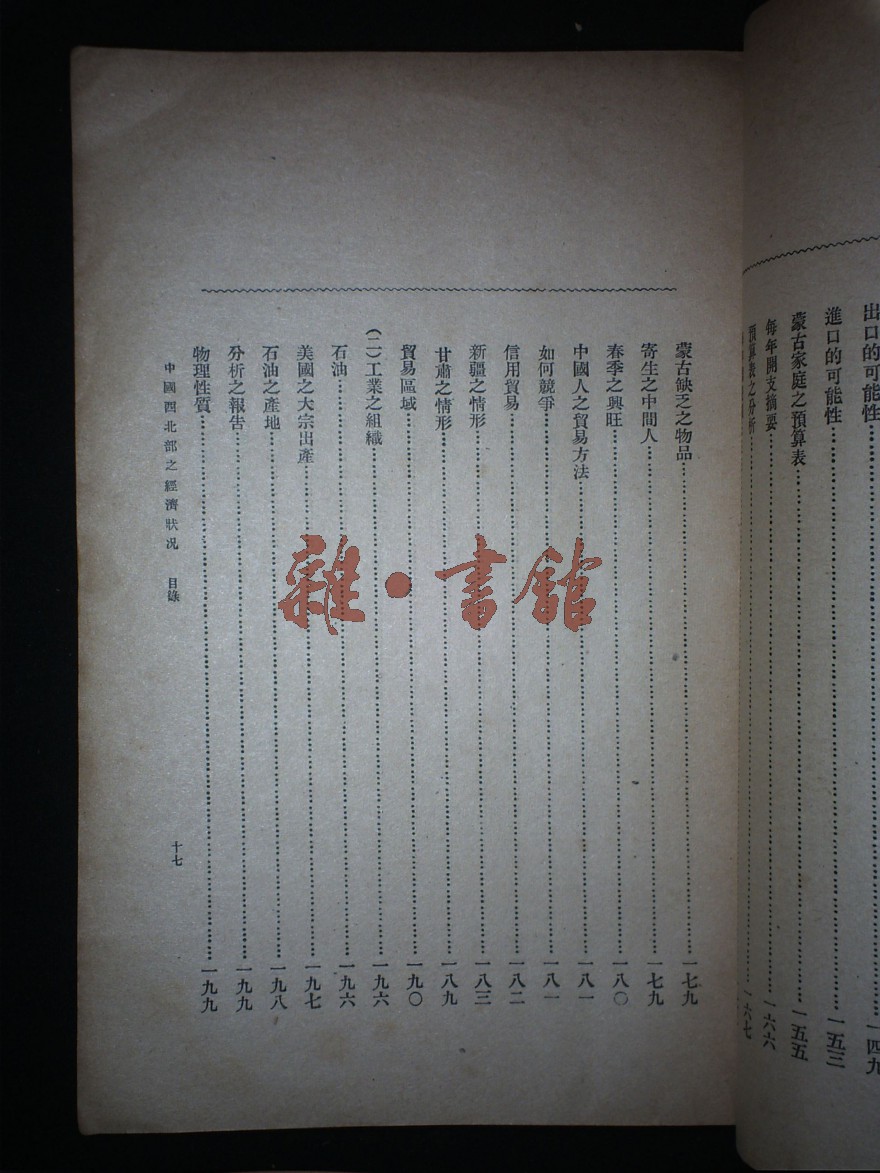 出口的可能性……一四九
進口的可能性……一五三
蒙古家庭之預算表……一五五
每年開支摘要……一六六
預算表之分析……一六七
蒙古缺乏之物品……一七九
寄生之中間人……一七九
春季之興旺……一八〇
中國人之貿易方法……一八一
如何競爭……一八一
信用貿易……一八二
新疆之情形……一八三
甘肅之情形……一八九
貿易區域……一九〇
(二)工業之組織……一九六
石油……一九六
美國之大宗出產……一九七
石油之產地……一九八
分析之報告……一九九
物理性質……一九九
中國西北部之經濟狀况 目錄 十七
雜·書館